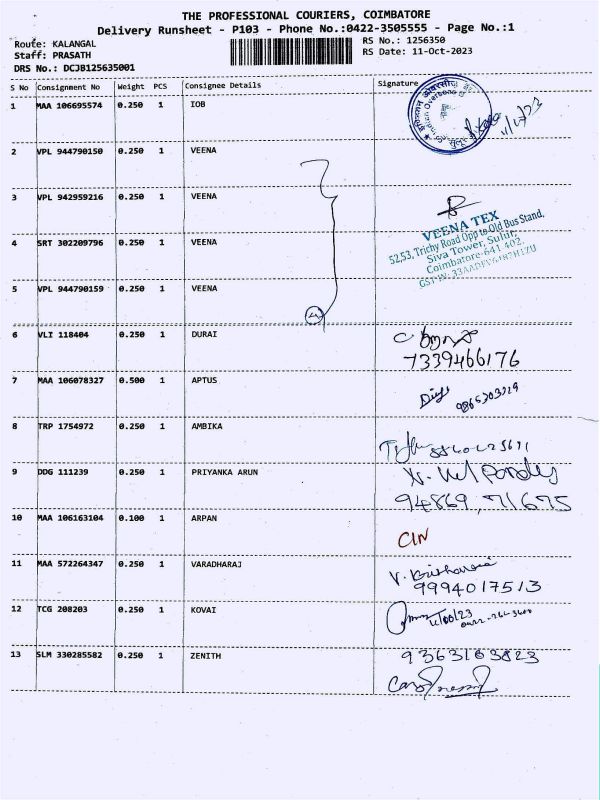 THE PROFESSIONAL COURIERS, COIMBATORE
Delivery Runsheet - P103 - Phone No.:0422-3505555 - Page No.:1
Route: KALANGAL
RS No.: 1256350
Staff: PRASATH
RS Date: 11-Oct-2023
DRS No.: DCJB125635001
S No Consignment No Weight PCS Consignee Details Signature
1 MAA 106695574 0.250 1 IOB
2 VPL 944790150 0.250 1 VEENA
3 VPL 942959216 0.250 1 VEENA
VEENA TEX
52,53, Trichy Road Opp to Old Bus Stand,
Siva Tower, Sulur,
Coimbatore-641 402.
4 SRT 302209796 0.250 1 VEENA
5 VPL 944790159 0.250 1 VEENA
6 VLI 118404 0.250 1 DURAI
7339466176
7 MAA 106078327 0.500 1 APTUS
8 TRP 1754972 0.250 1 AMBIKA
9 DDG 111239 0.250 1 PRIYANKA ARUN
94869,71675
10 MAA 106163104 0.100 1 ARPAN
CIN
11 MAA 572264347 0.250 1 VARADHARAJ
9994017513
12 TCG 208203 0.250 1 KOVAI
13 SLM 330285582 0.250 1 ZENITH
9363163823